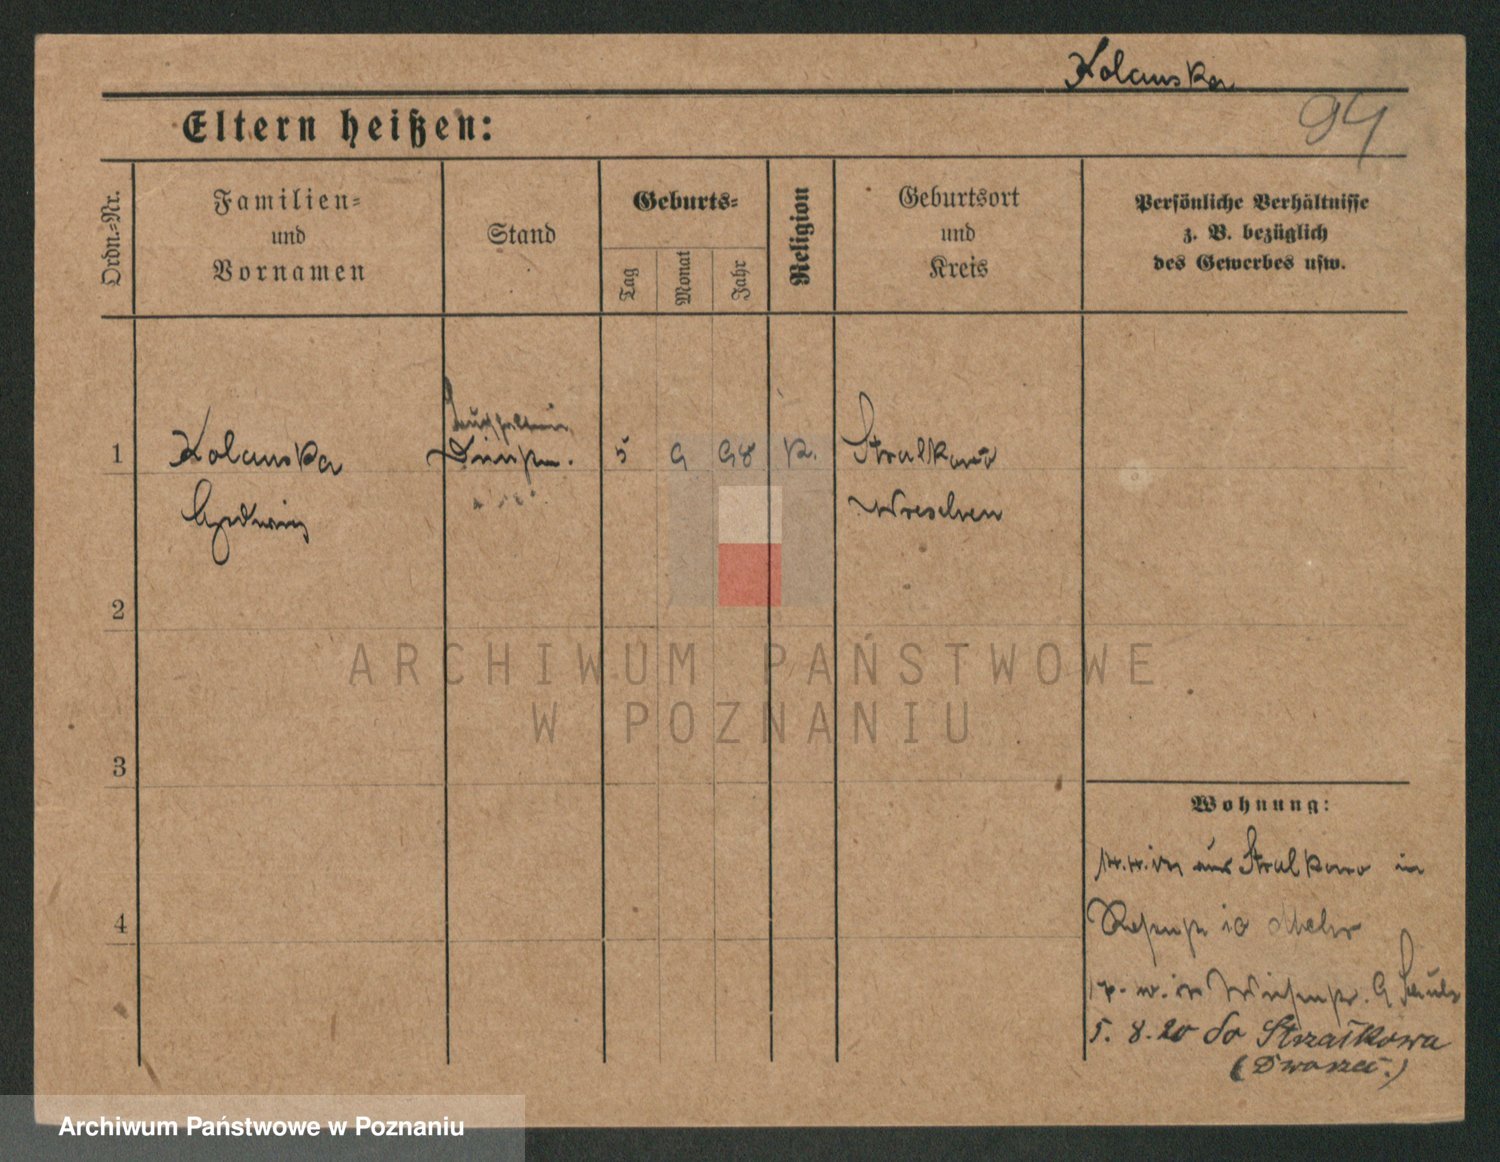 Kolanska
94
Eltern heißen:
Ordn.-Nr.
Familien-
und
Vornamen
Stand
Geburts-
Tag
Monat
Jahr
Religion
Geburtsort
und
Kreis
Persönliche Verhältnisse
z. B. bezüglich
des Gewerbes usw.
1 Kolanska 5 9 98 K. Stralkowo
Hedwig Wreschen
2
ARCHIWUM PAŃSTWOWE
W POZNANIU
3
Wohnung:
aus Stralkowo in
4
10
9
5. 8. 20 do Strzałkowa
(Dworzec.)
Archiwum Państwowe w Poznaniu